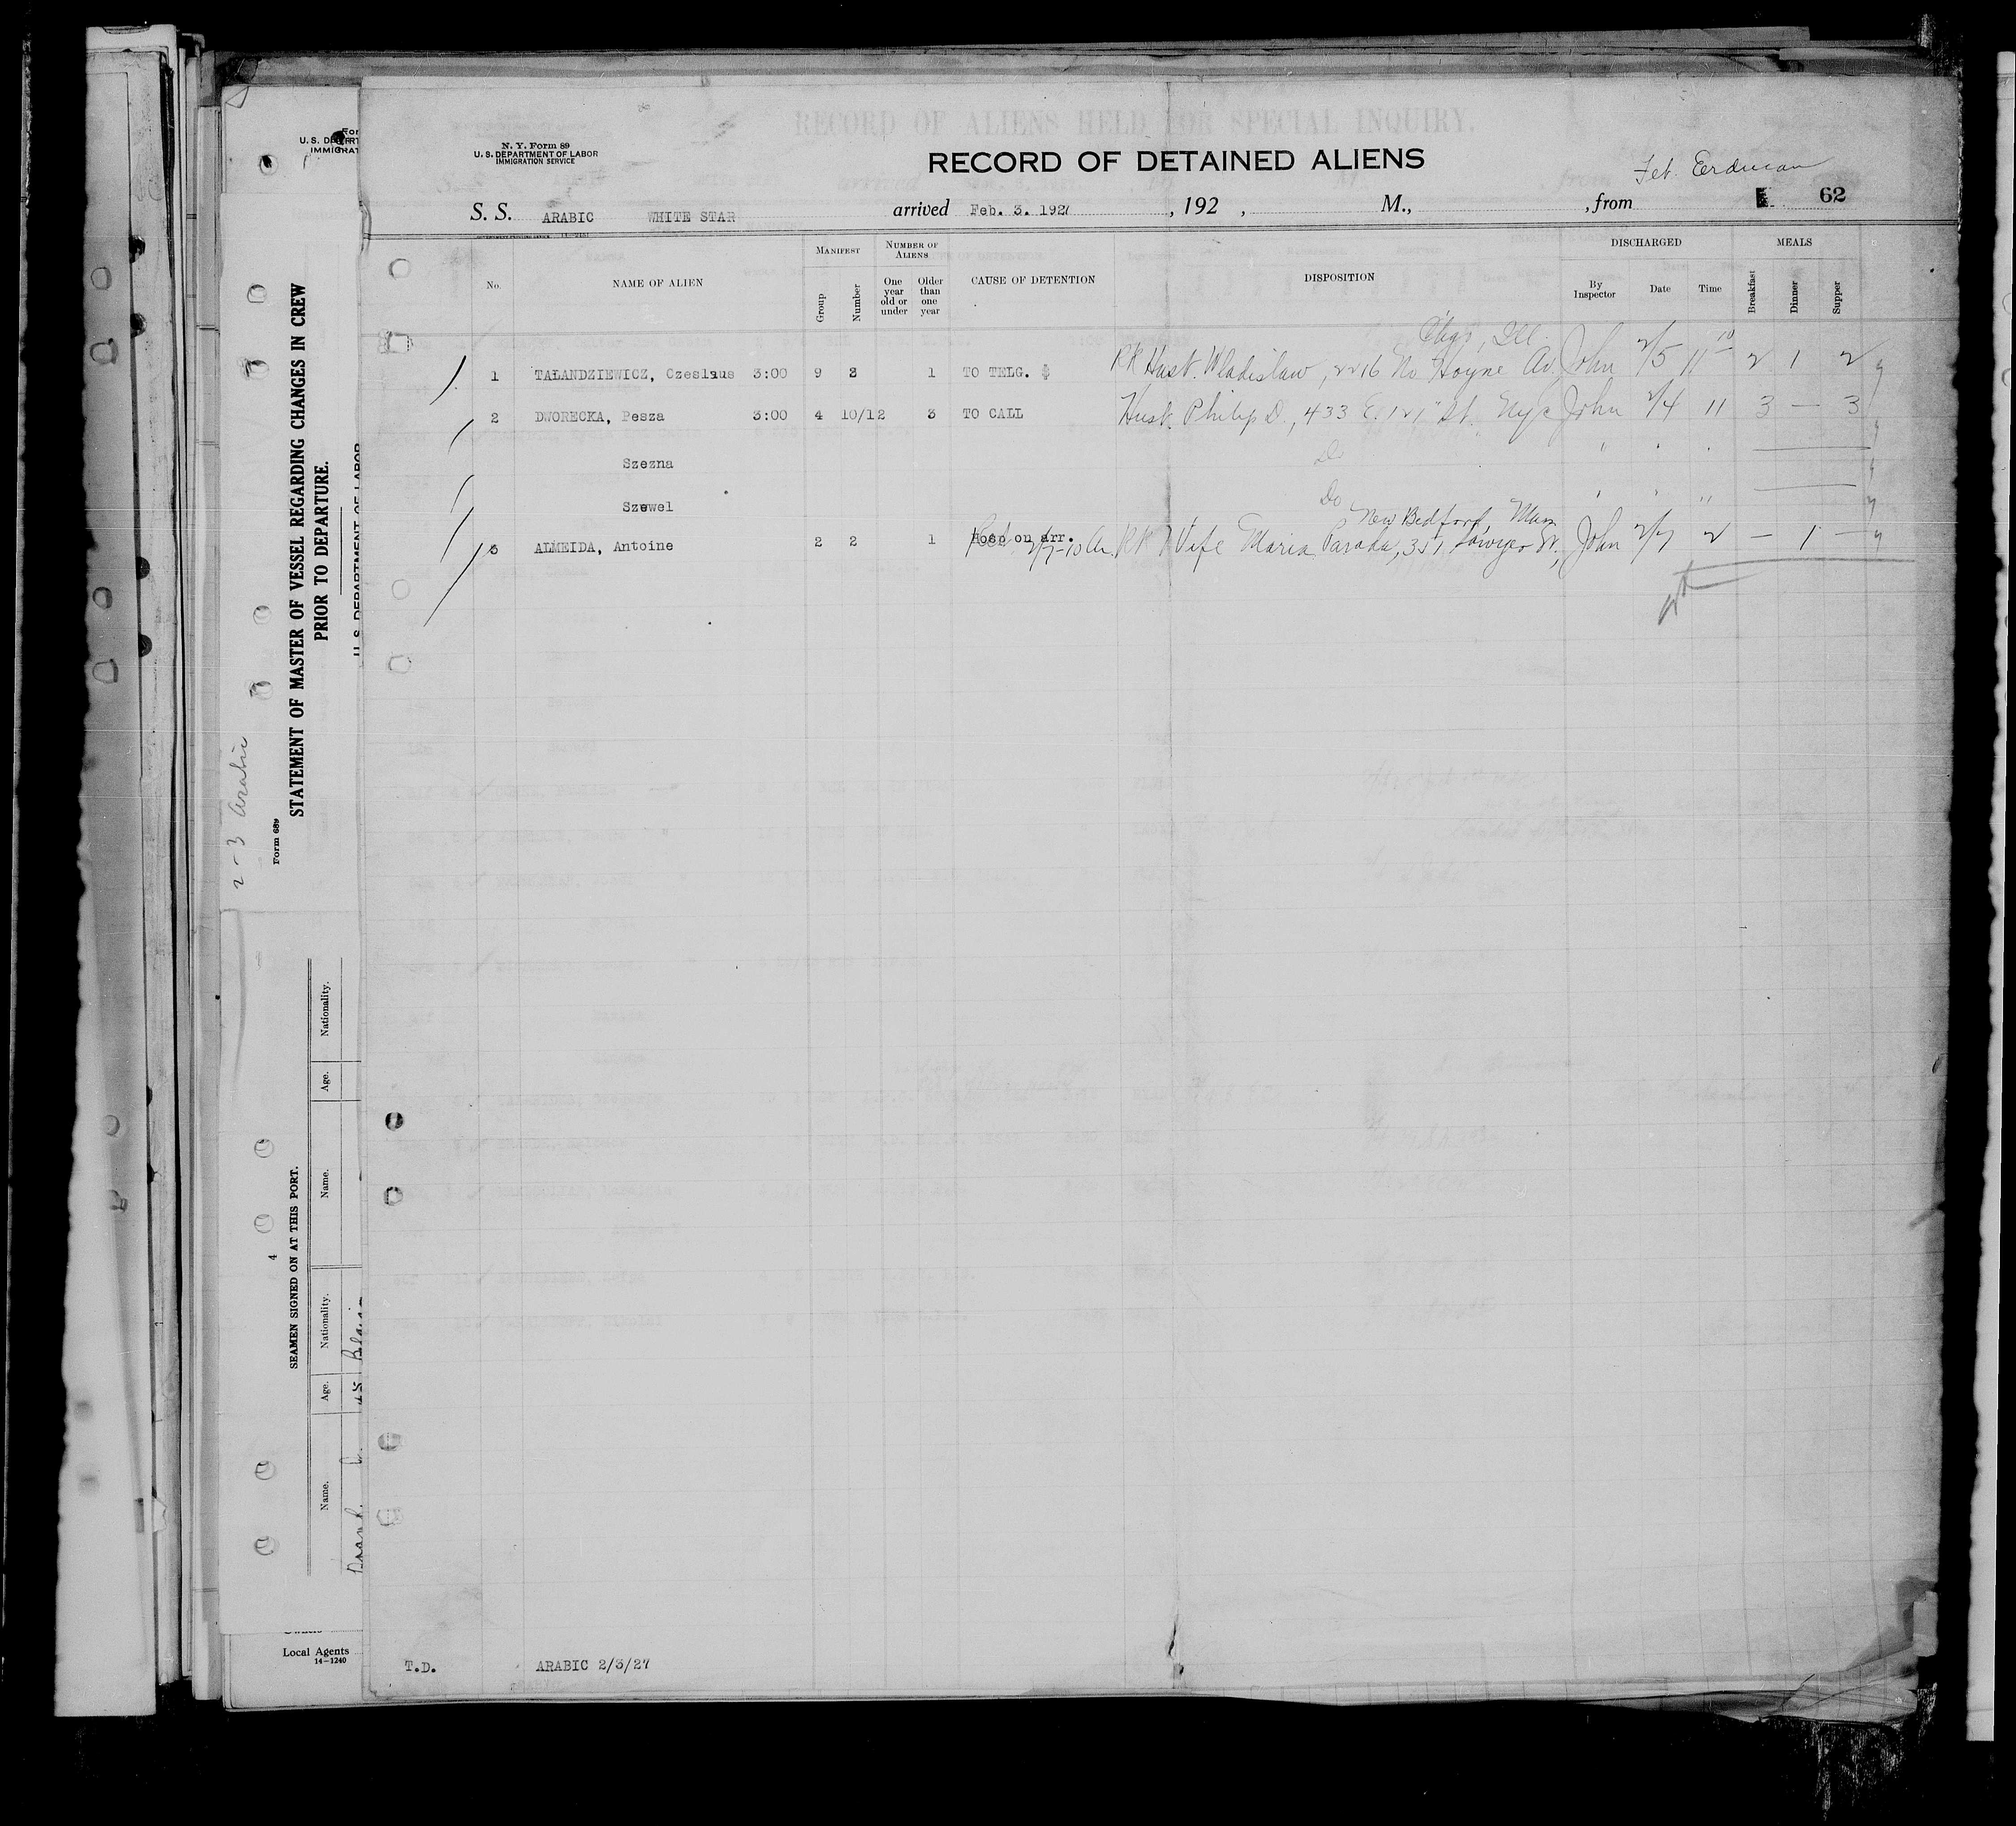 N. Y. Form 89
U. S. DEPARTMENT OF LABOR
IMMIGRATION SERVICE
RECORD OF ALIENS HELD FOR SPECIAL INQUIRY.
RECORD OF DETAINED ALIENS
S. S. ARABIC WHITE STAR arrived Feb. 3. 1927, 192 , M., , from 62
No. NAME OF ALIEN MANIFEST Group Number NUMBER OF ALIENS One year old or under Older than one year CAUSE OF DETENTION DISPOSITION DISCHARGED By Inspector Date Time MEALS Breakfast Dinner Supper
Chgo, Ill.
1 TALANDZIEWICZ, Czeslaus 3:00 9 2 1 TO TELG. $ RR Husb. Wladislaw, 2216 No Hoyne Av. John 2/5 11 10 2 1 2
2 DWORECKA, Pesza 3:00 4 10/12 3 TO CALL Husb Philip D., 433 E. 121" St. Nyc John 2/4 11 3 — 3
Szezna Do
Szewel Do
New Bedford, Mass
3 ALMEIDA, Antoine 2 2 1 Hosp on arr. 2/7-10 Am RR Wife Maria Parada, 351 Sawyer St., John 2/7 2 — 1 —
T.D. ARABIC 2/3/27
For
U. S. DEPART
IMMIGRAT
2-3 Arabic
Form 689
STATEMENT OF MASTER OF VESSEL REGARDING CHANGES IN CREW
PRIOR TO DEPARTURE.
U. S. DEPARTMENT OF LABOR
4
SEAMEN SIGNED ON AT THIS PORT.
Name. Age. Nationality. Name. Age. Nationality.
Local Agents
14—1240